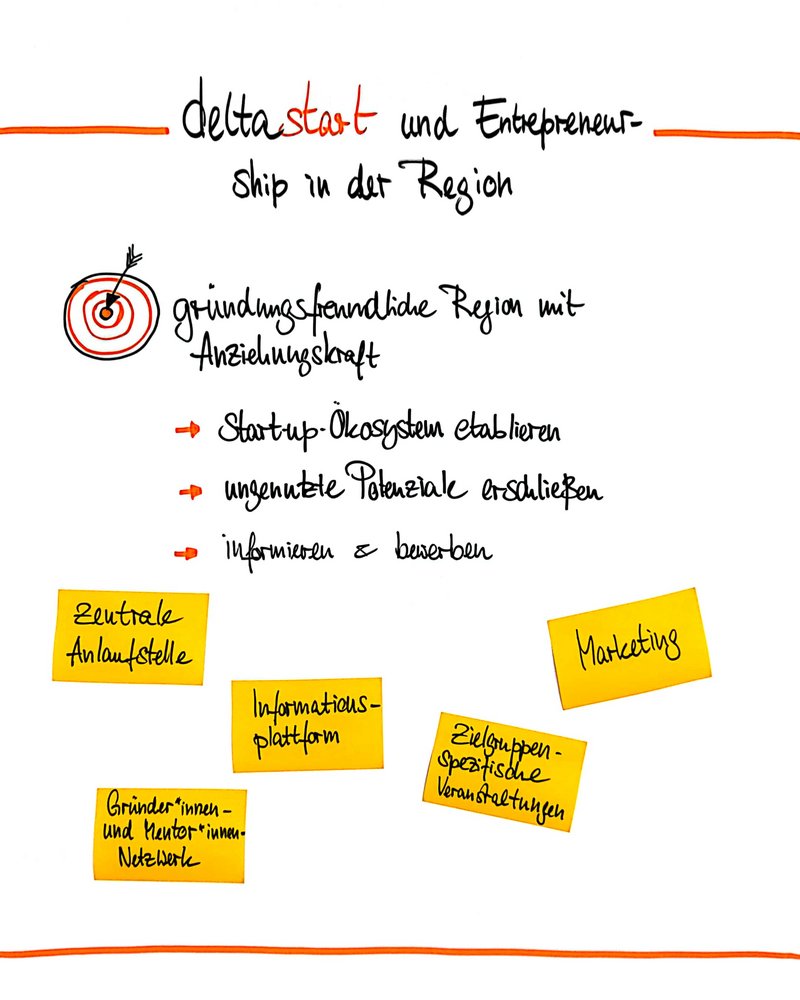 deltastart und Entrepreneur-
ship in der Region
gründungsfreundliche Region mit
Anziehungskraft
→ Start-up-Ökosystem etablieren
→ ungenutzte Potenziale erschließen
→ informieren & bewerben
Zentrale
Anlaufstelle
Marketing
Informations-
plattform
Zielgruppen-
spezifische
Veranstaltungen
Gründer*innen-
und Mentor*innen-
Netzwerk